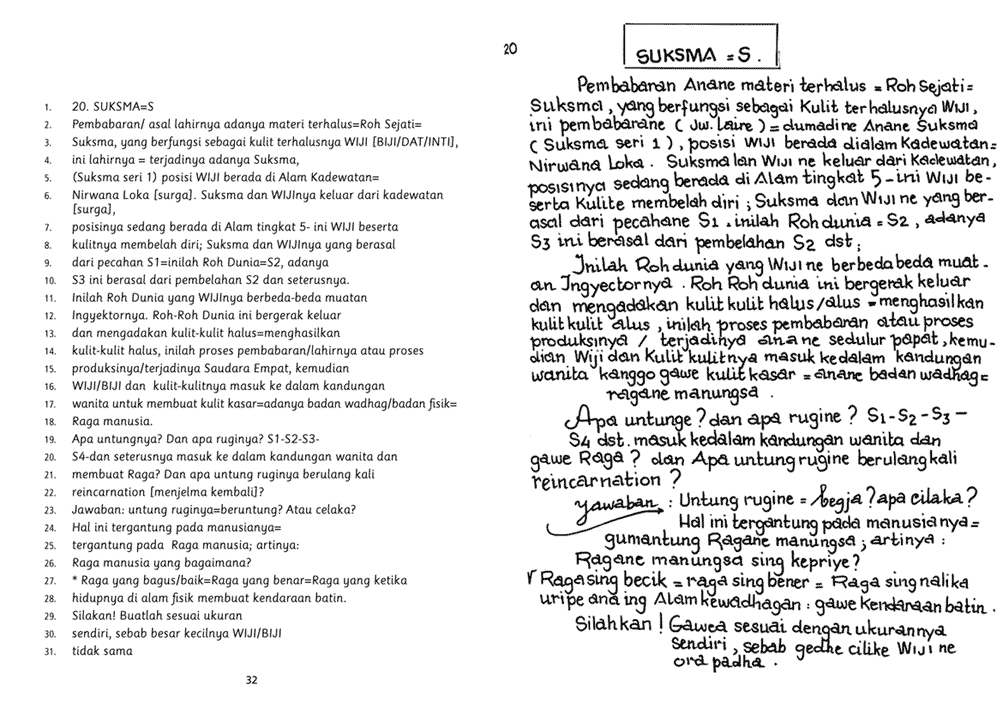 1. 20. SUKSMA=S
2. Pembabaran/ asal lahirnya adanya materi terhalus=Roh Sejati=
3. Suksma, yang berfungsi sebagai kulit terhalusnya WIJI [BIJI/DAT/INTI],
4. ini lahirnya = terjadinya adanya Suksma,
5. (Suksma seri 1) posisi WIJI berada di Alam Kadewatan=
6. Nirwana Loka [surga]. Suksma dan WIJInya keluar dari kadewatan
[surga],
7. posisinya sedang berada di Alam tingkat 5- ini WIJI beserta
8. kulitnya membelah diri; Suksma dan WIJInya yang berasal
9. dari pecahan S1=inilah Roh Dunia=S2, adanya
10. S3 ini berasal dari pembelahan S2 dan seterusnya.
11. Inilah Roh Dunia yang WIJInya berbeda-beda muatan
12. Ingyektornya. Roh-Roh Dunia ini bergerak keluar
13. dan mengadakan kulit-kulit halus=menghasilkan
14. kulit-kulit halus, inilah proses pembabaran/lahirnya atau proses
15. produksinya/terjadinya Saudara Empat, kemudian
16. WIJI/BIJI dan kulit-kulitnya masuk ke dalam kandungan
17. wanita untuk membuat kulit kasar=adanya badan wadhag/badan fisik=
18. Raga manusia.
19. Apa untungnya? Dan apa ruginya? S1-S2-S3-
20. S4-dan seterusnya masuk ke dalam kandungan wanita dan
21. membuat Raga? Dan apa untung ruginya berulang kali
22. reincarnation [menjelma kembali]?
23. Jawaban: untung ruginya=beruntung? Atau celaka?
24. Hal ini tergantung pada manusianya=
25. tergantung pada Raga manusia; artinya:
26. Raga manusia yang bagaimana?
27. * Raga yang bagus/baik=Raga yang benar=Raga yang ketika
28. hidupnya di alam fisik membuat kendaraan batin.
29. Silakan! Buatlah sesuai ukuran
30. sendiri, sebab besar kecilnya WIJI/BIJI
31. tidak sama
32
20
SUKSMA = S.
Pembabaran Anane materi terhalus = Roh Sejati =
Suksma, yang berfungsi sebagai Kulit terhalusnya WIJI,
ini pembabarane (Jw. Laire) = dumadine Anane Suksma
(Suksma seri 1), posisi WIJI berada dialam Kadewatan =
Nirwana Loka. Suksma lan WIJI ne keluar dari Kadewatan,
posisinya sedang berada di Alam tingkat 5 - ini WIJI be-
serta Kulite membelah diri; Suksma dan WIJI ne yang ber-
asal dari pecahane S1. inilah Roh dunia = S2, adanya
S3 ini berasal dari pembelahan S2 dst;
Inilah Roh dunia yang WIJI ne berbeda beda muat-
an Ingyectornya. Roh Roh dunia ini bergerak keluar
dan mengadakan kulit kulit halus/alus = menghasilkan
kulit kulit alus, inilah proses pembabaran atau proses
produksinya / terjadinya anane sedulur papat, kemu-
dian Wiji dan Kulit kulitnya masuk kedalam kandungan
wanita kanggo gawe kulit kasar = anane badan wadhag =
ragane manungsa.
Apa untunge? dan apa rugine? S1-S2-S3-
S4 dst. masuk kedalam kandungan wanita dan
gawe Raga? dan Apa untung rugine berulang kali
reincarnation?
yawaban: Untung rugine = begja? apa cilaka?
Hal ini tergantung pada manusia nya =
gumantung Ragane manungsa; artinya:
Ragane manungsa sing kepriye?
√ Raga sing becik = raga sing bener = Raga sing nalika
uripe ana ing Alam kewadhagan: gawe Kendaraan batin.
Silahkan! Gawea sesuai dengan ukurannya
sendiri, sebab gedhe cilike WIJI ne
ora padha.